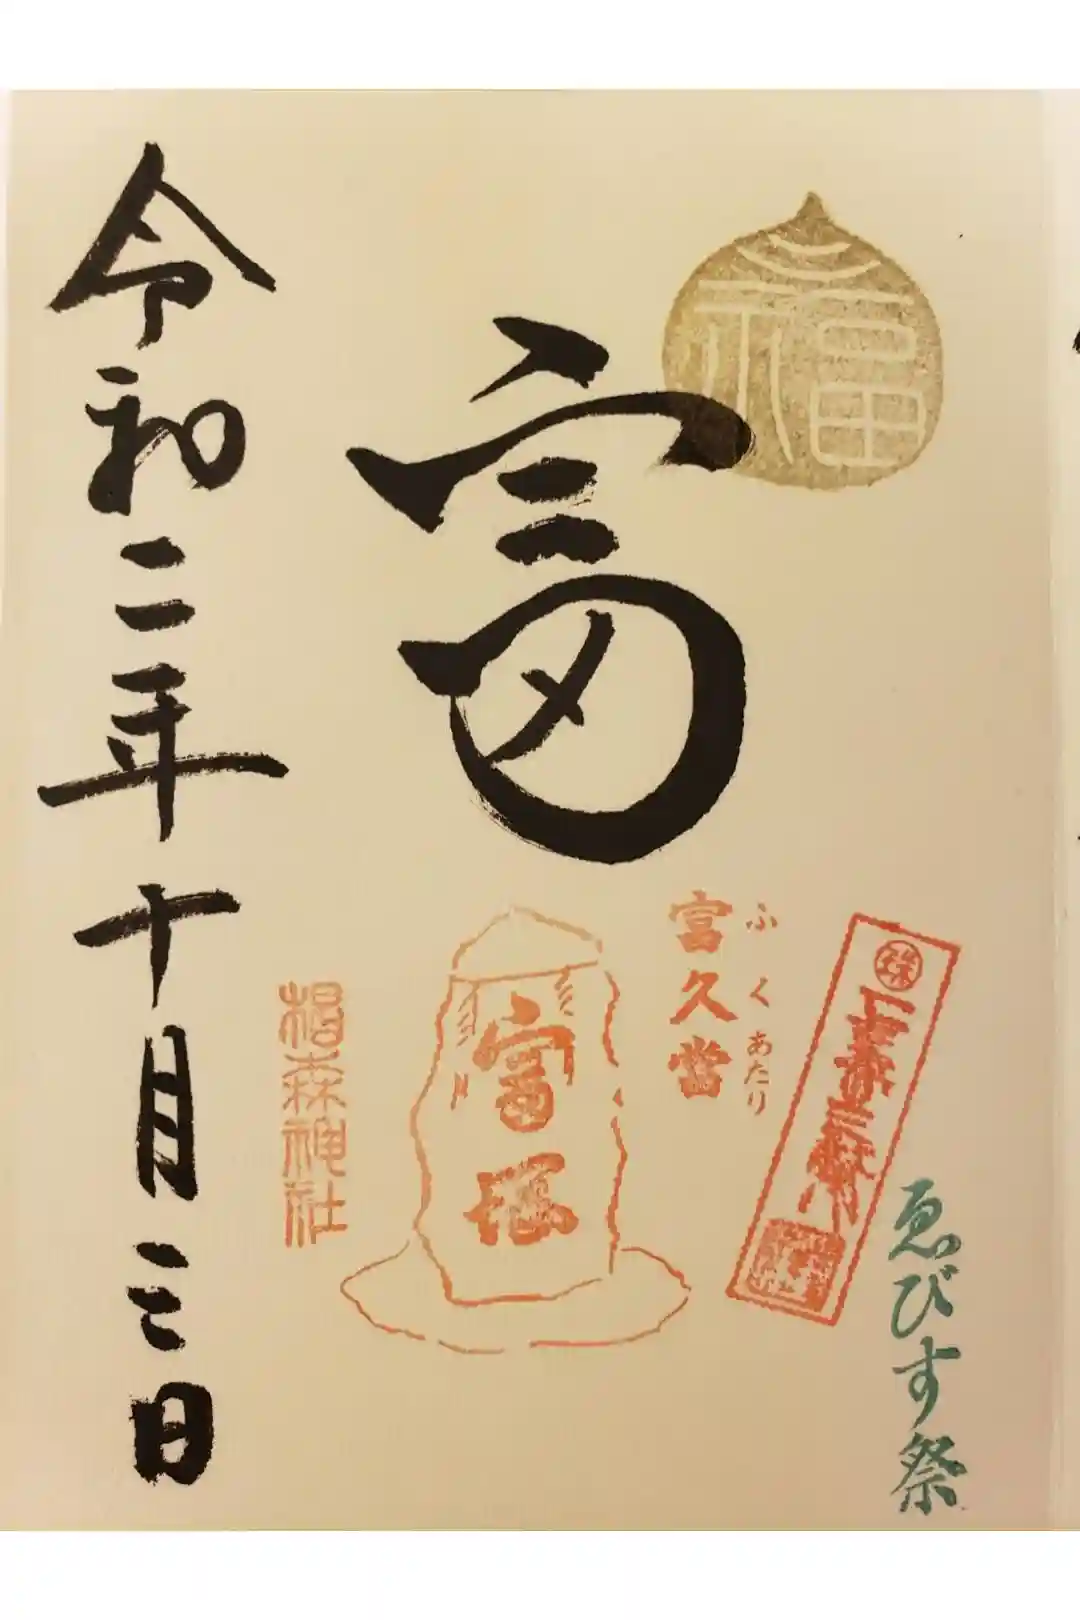 福
ゑびす祭
ふくあたり
富久當
富
富塚
椙森神社
令和二年十月三日